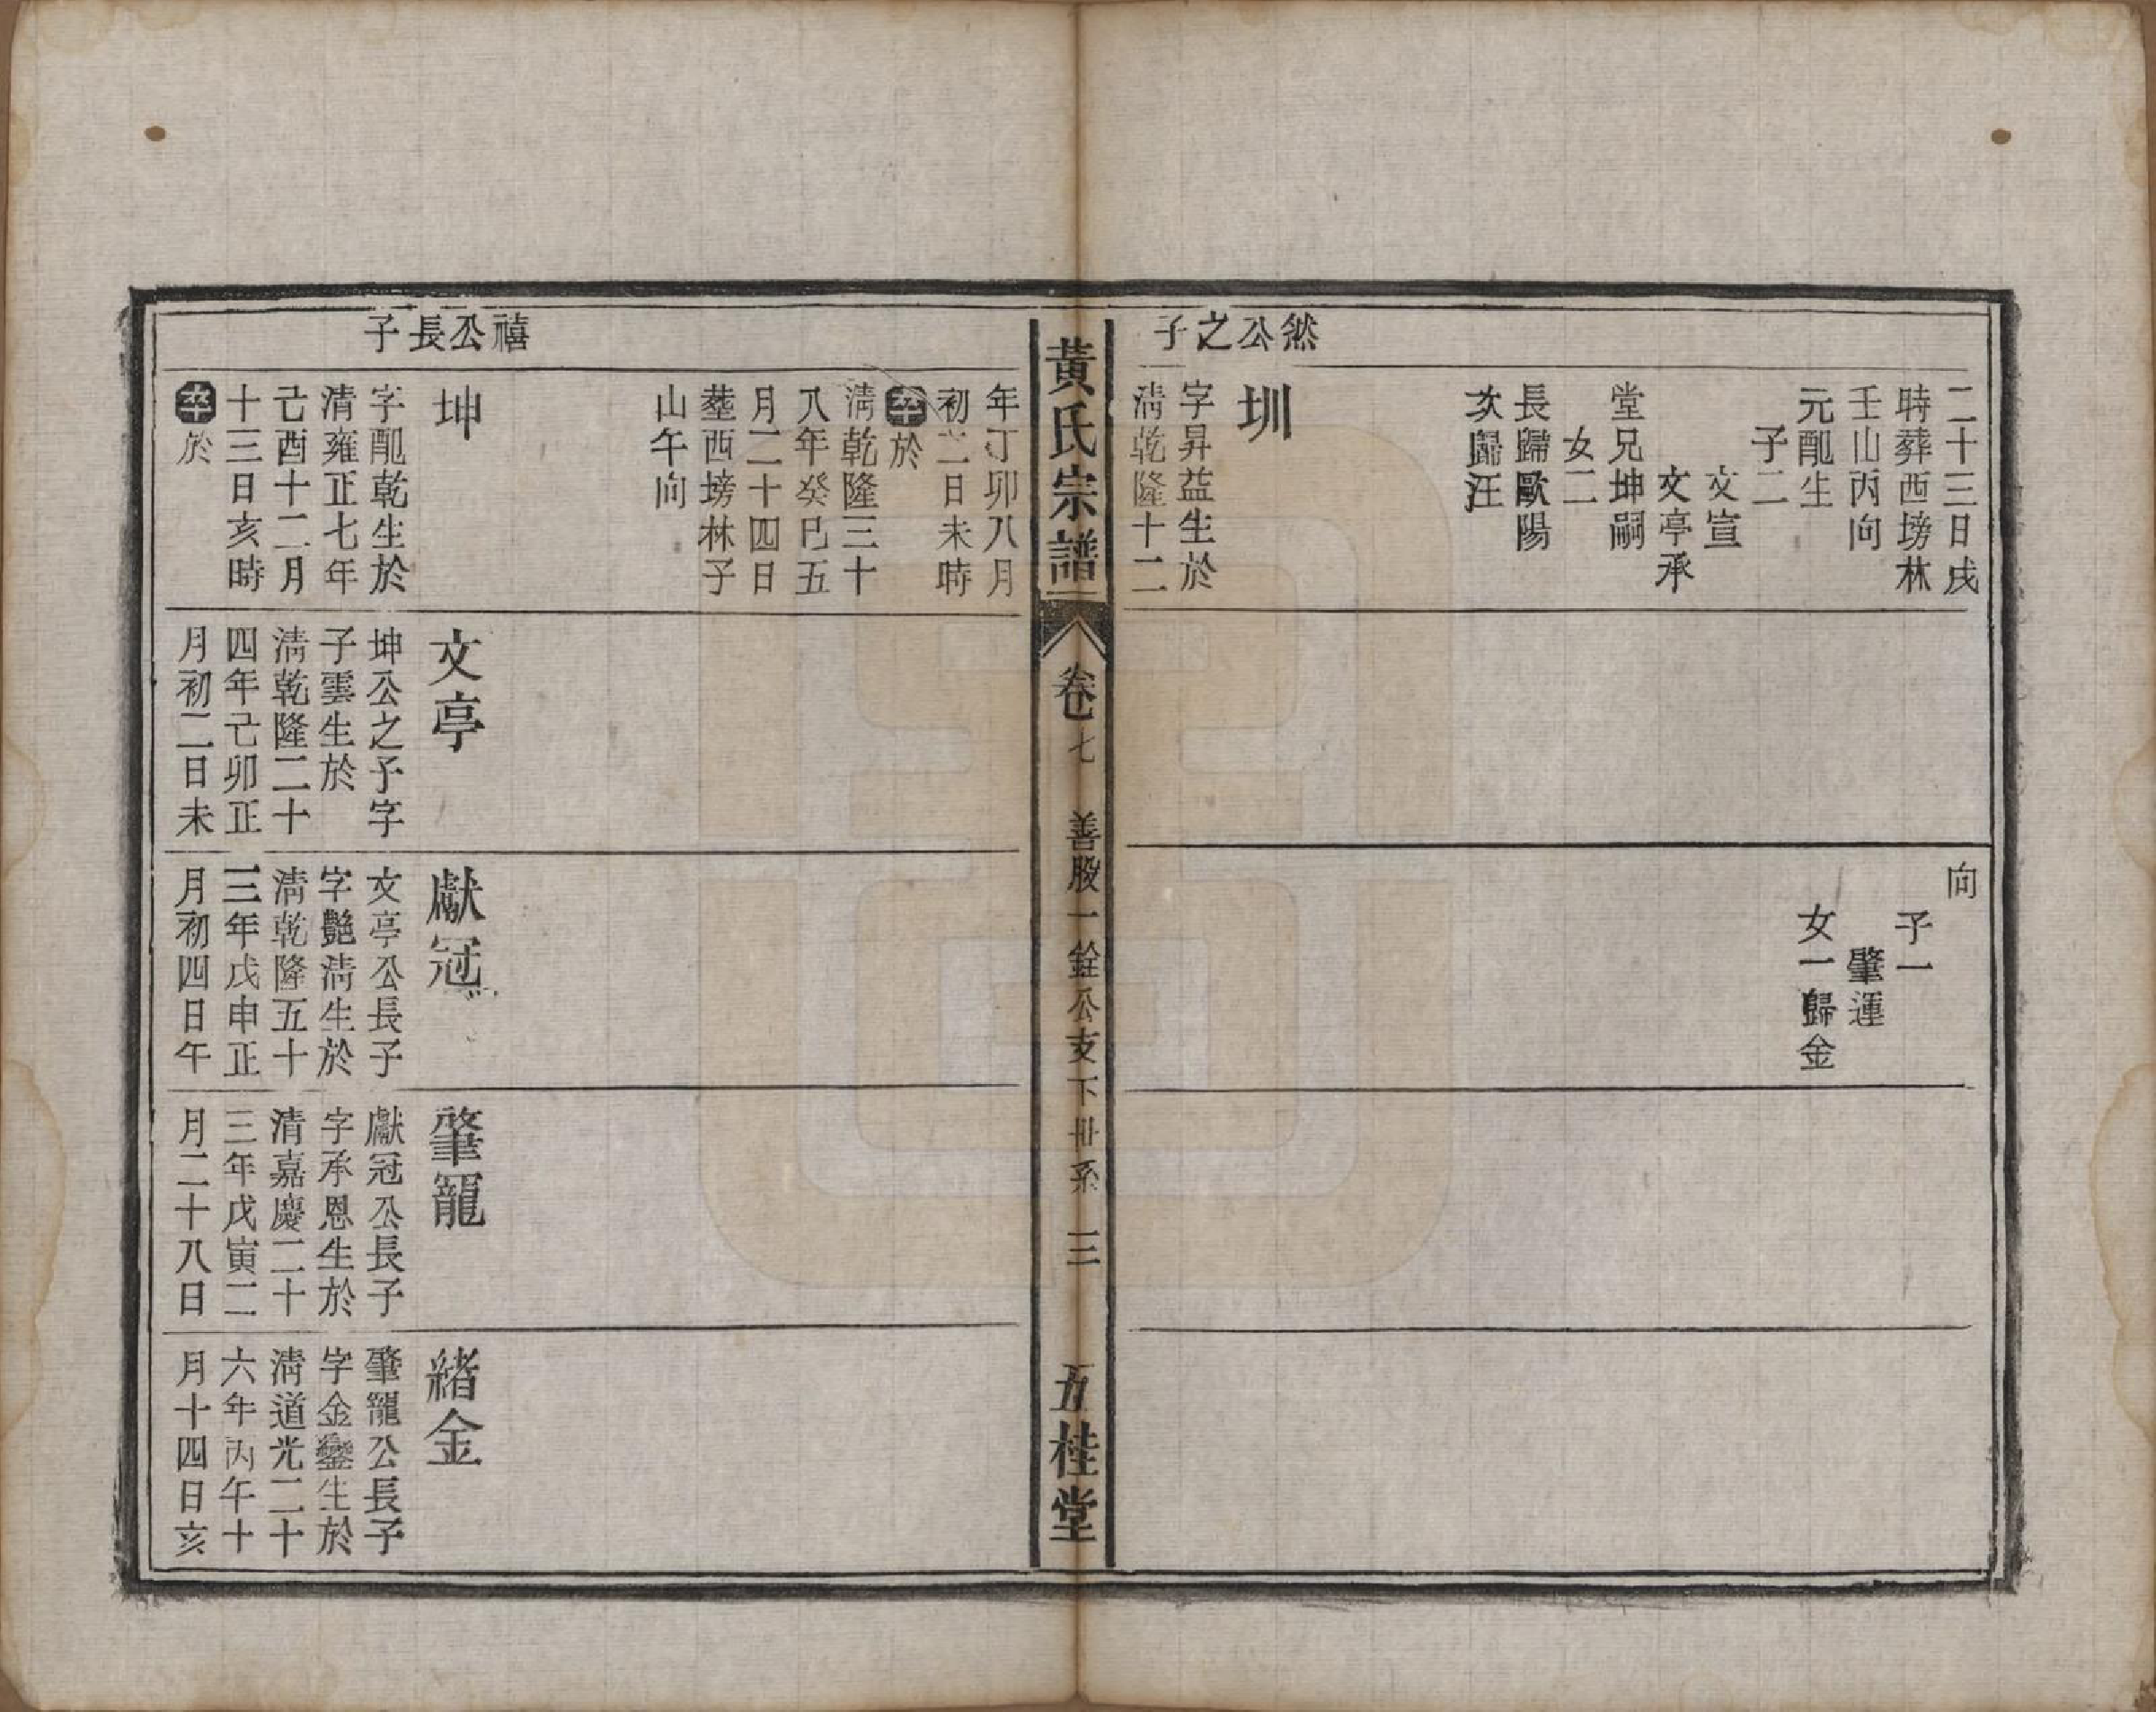 然公之子
二十三日戌
時葬西塝林
壬山丙向
元配生
子二
文宣
文亭承
堂兄坤嗣
女二
長歸歐陽
次歸汪
圳
字昇益生於
清乾隆十二
向
子一
肇運
女一歸金
黃氏宗譜
卷七
善股一銓公支下世系
三
五桂堂
禧公長子
年丁卯八月
初二日未時
於
清乾隆三十
八年癸巳五
月二十四日
塟西塝林子
山午向
坤
字配乾生於
清雍正七年
己酉十二月
十三日亥時
於
文亭
坤公之子字
子雲生於
清乾隆二十
四年己卯正
月初二日未
獻冠
文亭公長子
字艷清生於
清乾隆五十
三年戊申正
月初四日午
肇寵
獻冠公長子
字承恩生於
清嘉慶二十
三年戊寅二
月二十八日
緒金
肇寵公長子
字金鑾生於
清道光二十
六年丙午十
月十四日亥